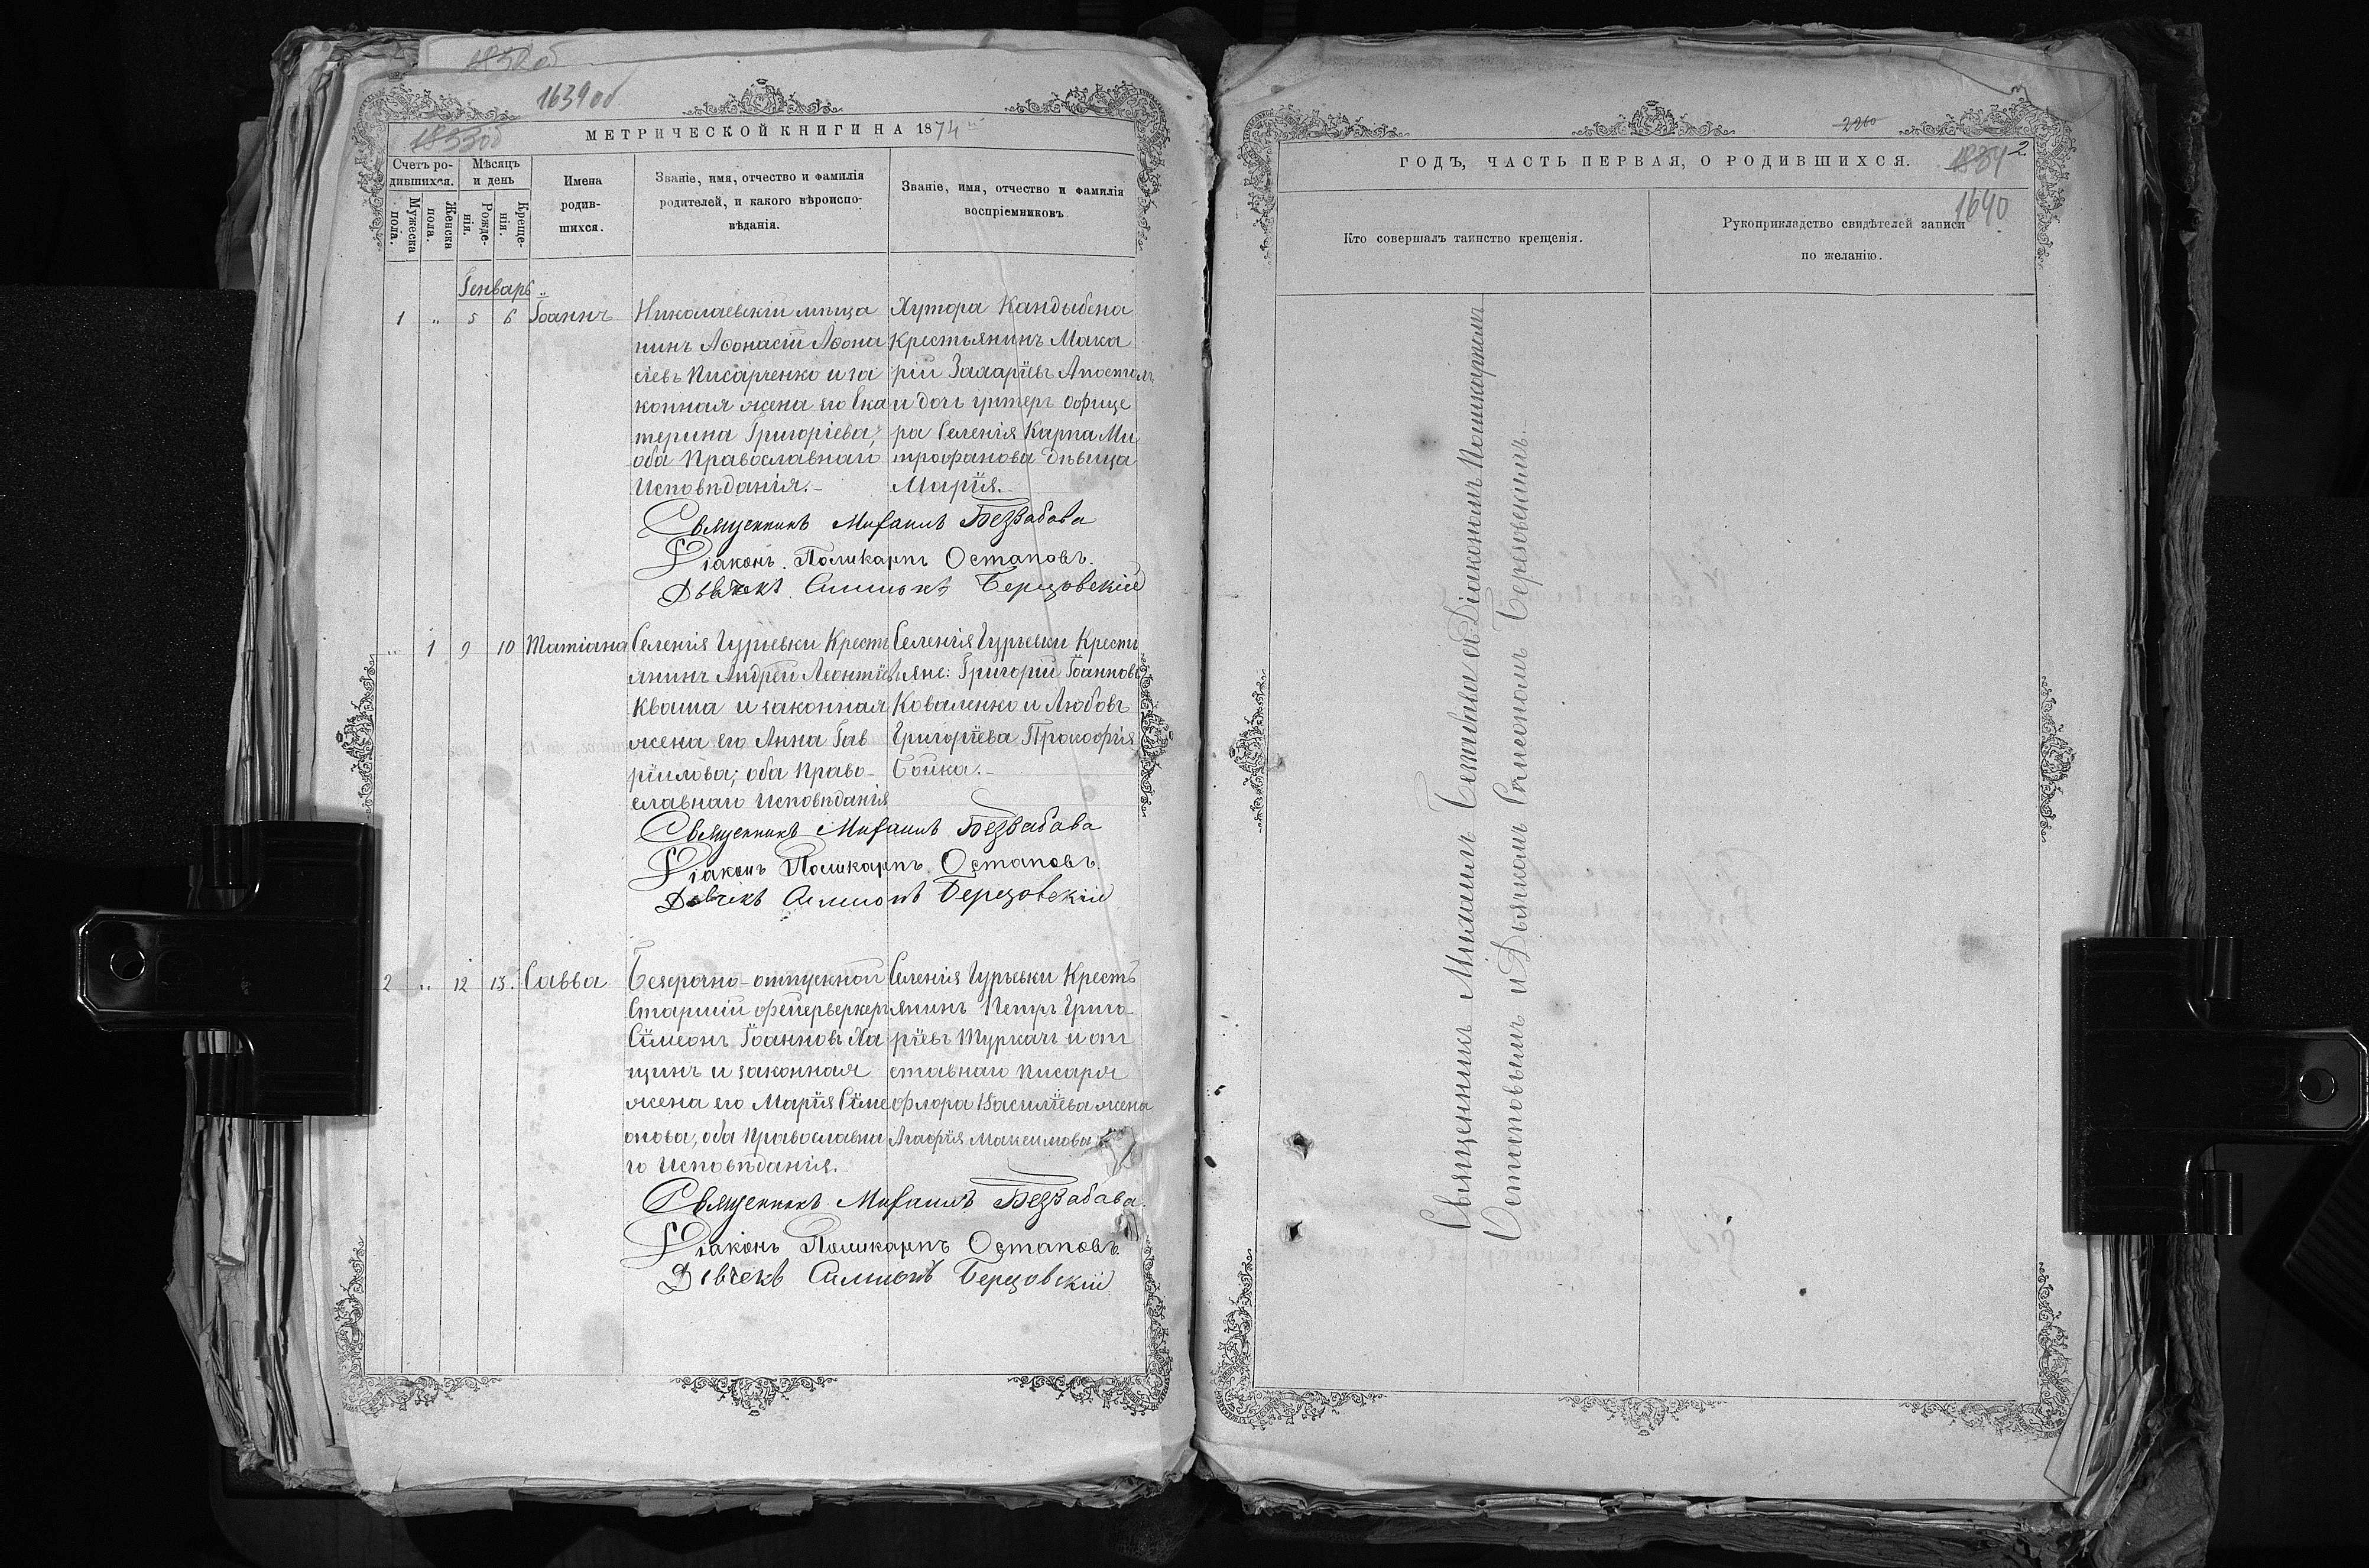 1639об
1833об
МЕТРИЧЕСКОЙ КНИГИ НА 1874
Счетъ ро-
дившихся.
Мѣсяцъ
и день
Мужеска
пола.
Женска
пола.
Рожде-
нія.
Креще-
нія.
Имена
родив-
шихся.
Званіе, имя, отчество и фамилія
родителей, и какого вѣроиспо-
вѣданія.
Званіе, имя, отчество и фамилія
воспріемниковъ
Генварь
1 „ 5 6 Іоаннъ
Николаевскій мѣща
нинъ Аѳонасій Аѳона
сіевъ Писарченко и за
конная жена его Ека
терина Григоріева,
оба Православнаго
Исповѣданія.-
Хутора Кандыбена
Крестьянинъ Мака
рій Захаріевъ Апостолъ
и дочь унтеръ офице
ра Селенія Карпа Ми
трофанова дѣвица
Марія.
Священникъ Михаилъ Беззабава
Діаконъ Поликарпъ Остаповъ.
Дьячекъ Симионъ Березовскій
„ 1 9 10 Татіана
Селенія Гурьевки Кресть
янинъ Андрей Леонтіевъ
Кваша и законная
жена его Анна Гав
ріилова; оба Право-
славнаго Исповѣданія
Селенія Гурьевки Кресть
яне: Григорій Іоанновъ
Коваленко и Любовь
Григоріева Прокофія
Бойка.-
Священникъ Михаилъ Беззабава
Діаконъ Поликарпъ Остаповъ.
Дьячекъ Симионъ Березовскій
2 „ 12 13. Савва
Безсрочно-отпускной
Старшій фейерверкеръ
Сімеонъ Іоанновъ Ха
щинъ и законная
жена его Марія Сіме
онова, оба Православна
го Исповѣданія.
Селенія Гурьевки Кресть
янинъ Петръ Григо-
ріевъ Туркачъ и от
ставнаго писаря
Флора Василіева жена
Агафія Максимова
Священникъ Михаилъ Беззабава.
Діаконъ Поликарпъ Остаповъ.
Дьячекъ Симионъ Березовскій
2260
ГОДЪ, ЧАСТЬ ПЕРВАЯ, О РОДИВШИХСЯ.
1834 2
1640
Кто совершалъ таинство крещенія.
Рукоприкладство свидѣтелей записи
по желанію.
Священникъ Михаилъ Беззабава съ Діакономъ Поликарпомъ
Остаповымъ и Дьячкомъ Симеономъ Березовскимъ.